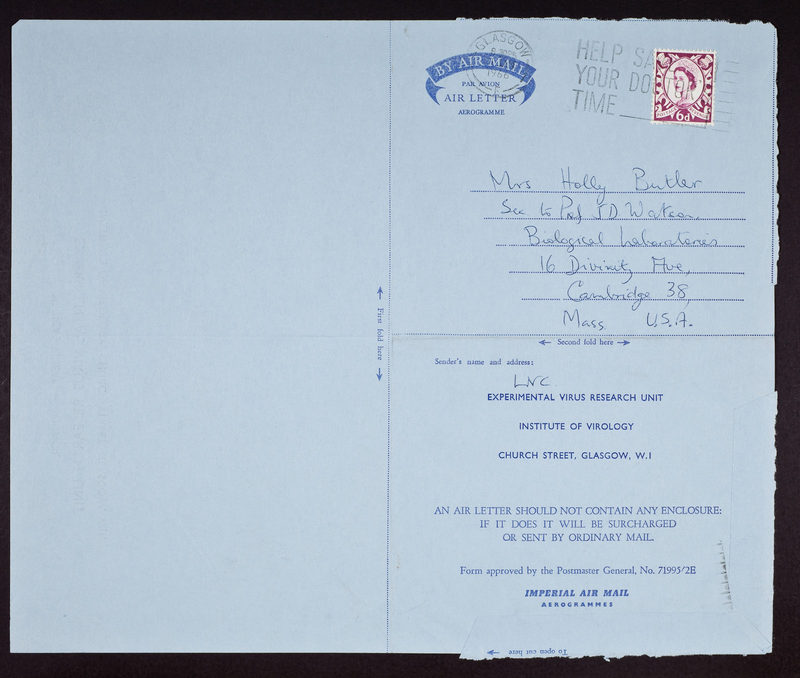 GLASGOW
1966
HELP SA
YOUR DO
TIME
6d
BY AIR MAIL
PAR AVION
AIR LETTER
AEROGRAMME
Mrs Holly Butler
Sec to Prof J.D. Watson,
Biological Laboratories
16 Divinity Ave,
Cambridge 38,
Mass U.S.A.
First fold here
Second fold here
Sender's name and address:
LVC.
EXPERIMENTAL VIRUS RESEARCH UNIT
INSTITUTE OF VIROLOGY
CHURCH STREET, GLASGOW, W.1
AN AIR LETTER SHOULD NOT CONTAIN ANY ENCLOSURE:
IF IT DOES IT WILL BE SURCHARGED
OR SENT BY ORDINARY MAIL.
Form approved by the Postmaster General, No. 71995/2E
IMPERIAL AIR MAIL
AEROGRAMMES
To open cut here